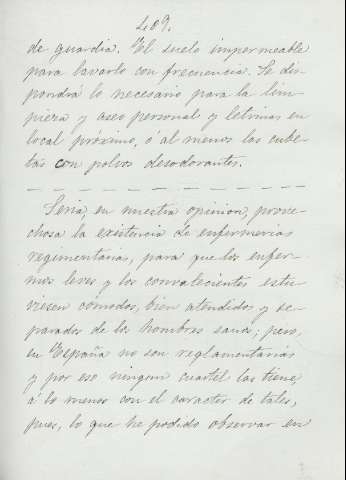 409.
de guardia. El suelo impermeable
para lavarlo con frecuencia. Se dis-
pondrá lo necesario para la lim-
pieza y aseo personal y letrinas en
local próximo, ó al menos las cube-
tas con polvos desodorantes.
Seria, en nuestra opinion, prove-
chosa la existencia de enfermerias
regimentarias, para que los enfer-
mos leves y los convalecientes estu-
viesen cómodos, bien atendidos y se-
parados de los hombres sanos; pero,
en España no son reglamentarias
y por eso ningun cuartel las tiene,
á lo menos con el caracter de tales,
pues, lo que he podido observar en